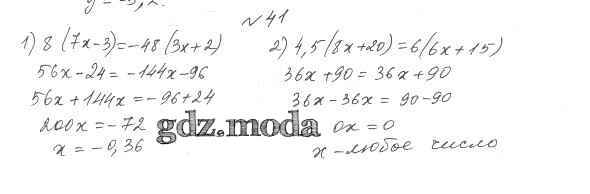 y = -3,2.
№ 41
1) 8 (7x-3)=-48 (3x+2)
56x-24 = -144x-96
56x+144x = -96+24
200x = -72
x = -0,36
2) 4,5 (8x+20) = 6(6x+15)
36x+90 = 36x+90
36x-36x = 90-90
0x = 0
x - любое число
gdz.moda